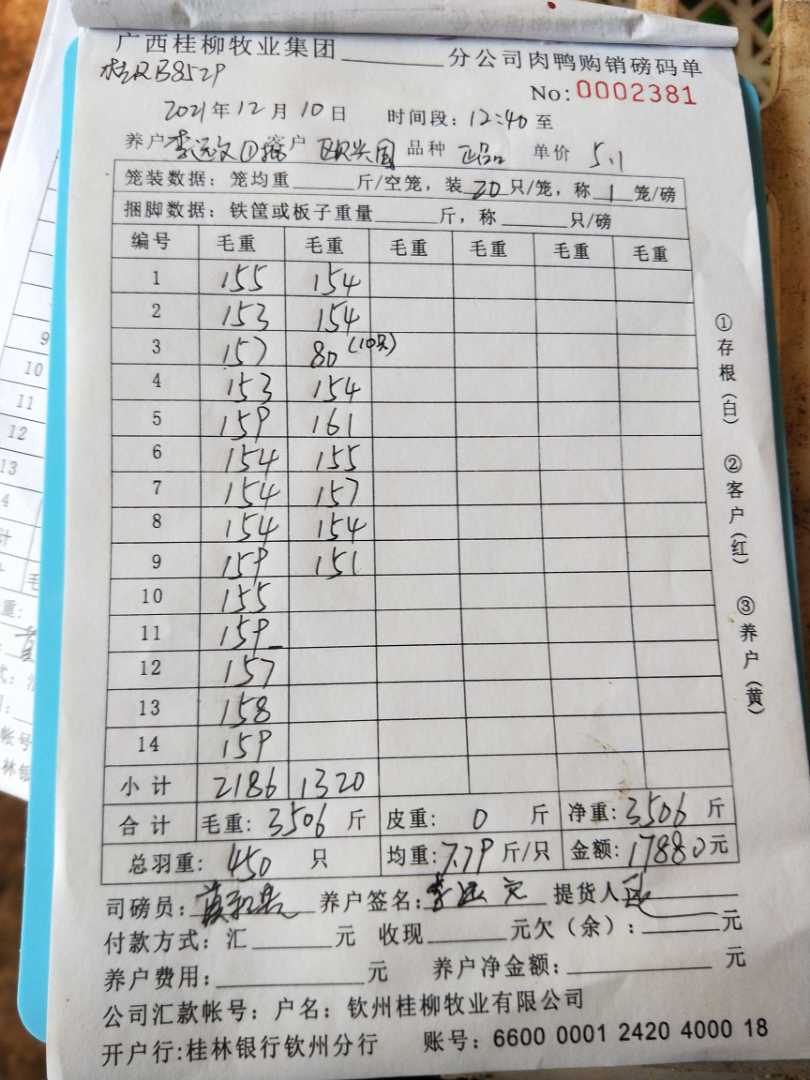 广西桂柳牧业集团________分公司肉鸭购销磅码单
桂RB8529
No:0002381
2021年12月10日 时间段:12:40至
养户李远文①批 客户 欧兴国 品种 正品 单价 5.1
笼装数据:笼均重______斤/空笼,装20只/笼,称1笼/磅
捆脚数据:铁筐或板子重量______斤,称______只/磅
编号 毛重 毛重 毛重 毛重 毛重 毛重
1 155 154
2 153 154
3 157 80(10只)
4 153 154
5 159 161
6 154 155
7 154 157
8 154 154
9 159 151
10 155
11 159
12 157
13 158
14 159
小计 2186 1320
合计 毛重:3506斤 皮重:0斤 净重:3506斤
总羽重:450只 均重:7.79斤/只 金额:17880元
司磅员: 养户签名:李远文 提货人
付款方式:汇______元 收现______元欠(余):______元
养户费用:____________元 养户净金额:____________元
公司汇款帐号:户名:钦州桂柳牧业有限公司
开户行:桂林银行钦州分行 账号:6600 0001 2420 4000 18
①存根(白) ②客户(红) ③养户(黄)
9
10
11
12
13